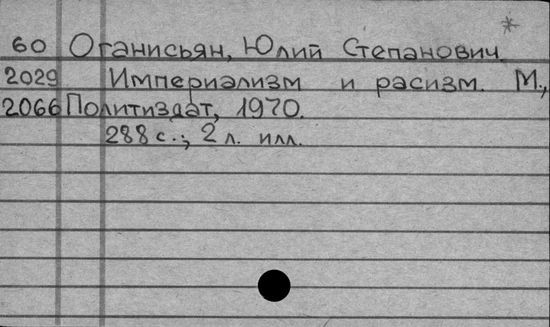 *
60 Оганисьян, Юлий Степанович.
2029 Империализм и расизм. М.,
2066 Политиздат, 1970.
288 с.; 2 л. илл.